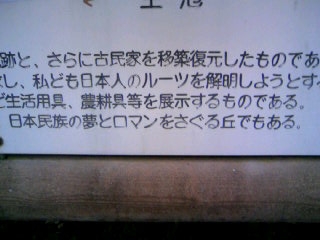 跡と、さらに古民家を移築復元したものであ
し、私ども日本人のルーツを解明しようとす
生活用具、農耕具等を展示するものである。
日本民族の夢とロマンをさぐる丘でもある。